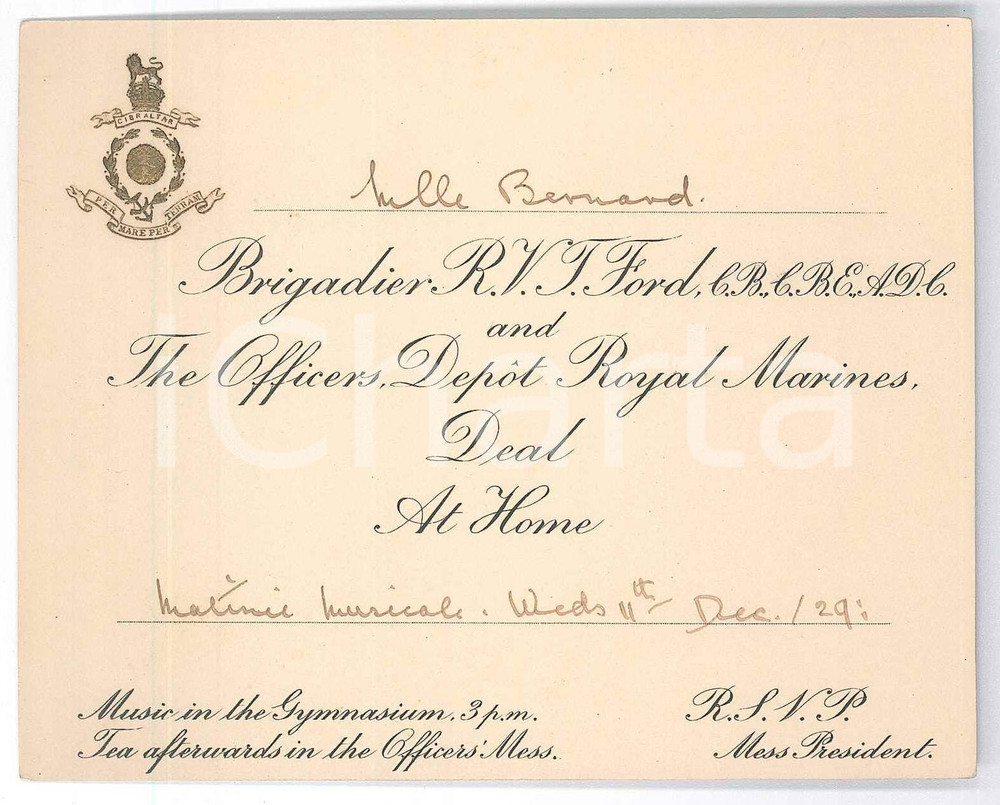 GIBRALTAR
PER MARE PER TERRAM
Mlle Bernard.
Brigadier R.V.T. Ford, C.B., C.B.E., A.D.C.
and
The Officers, Depôt Royal Marines,
Deal
At Home
Matinée Musicale. Weds 11th Dec. / 29:
Music in the Gymnasium. 3 p.m.
Tea afterwards in the Officers' Mess.
R.S.V.P.
Mess President.
iCharta